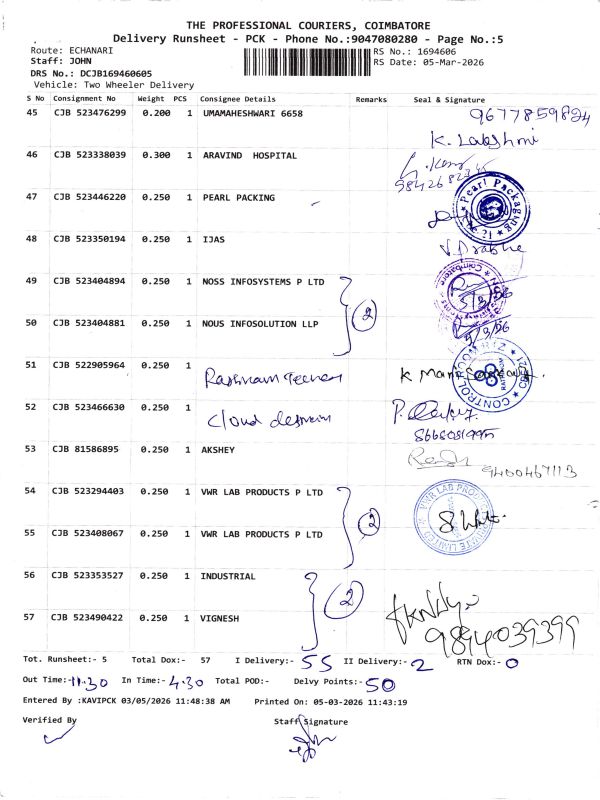 THE PROFESSIONAL COURIERS, COIMBATORE
Delivery Runsheet - PCK - Phone No.:9047080280 - Page No.:5
Route: ECHANARI
Staff: JOHN
DRS No.: DCJB169460605
Vehicle: Two Wheeler Delivery
RS No.: 1694606
RS Date: 05-Mar-2026
S No Consignment No Weight PCS Consignee Details Remarks Seal & Signature
45 CJB 523476299 0.200 1 UMAMAHESHWARI 6658 9677859824
K. Lakshmi
46 CJB 523338039 0.300 1 ARAVIND HOSPITAL
47 CJB 523446220 0.250 1 PEARL PACKING
Pearl Packaging
48 CJB 523350194 0.250 1 IJAS
49 CJB 523404894 0.250 1 NOSS INFOSYSTEMS P LTD
2
50 CJB 523404881 0.250 1 NOUS INFOSOLUTION LLP
51 CJB 522905964 0.250 1
CONTROL ROOM
52 CJB 523466630 0.250 1 Cloud
53 CJB 81586895 0.250 1 AKSHEY
9400467113
54 CJB 523294403 0.250 1 VWR LAB PRODUCTS P LTD
2
VWR LAB PRODUCTS PRIVATE LIMITED
55 CJB 523408067 0.250 1 VWR LAB PRODUCTS P LTD
56 CJB 523353527 0.250 1 INDUSTRIAL
2
57 CJB 523490422 0.250 1 VIGNESH
9894039399
Tot. Runsheet:- 5 Total Dox:- 57 I Delivery:- 55 II Delivery:- 2 RTN Dox:- 0
Out Time:- 11.30 In Time:- 4.30 Total POD:- Delvy Points:- 50
Entered By :KAVIPCK 03/05/2026 11:48:38 AM Printed On: 05-03-2026 11:43:19
Verified By Staff Signature